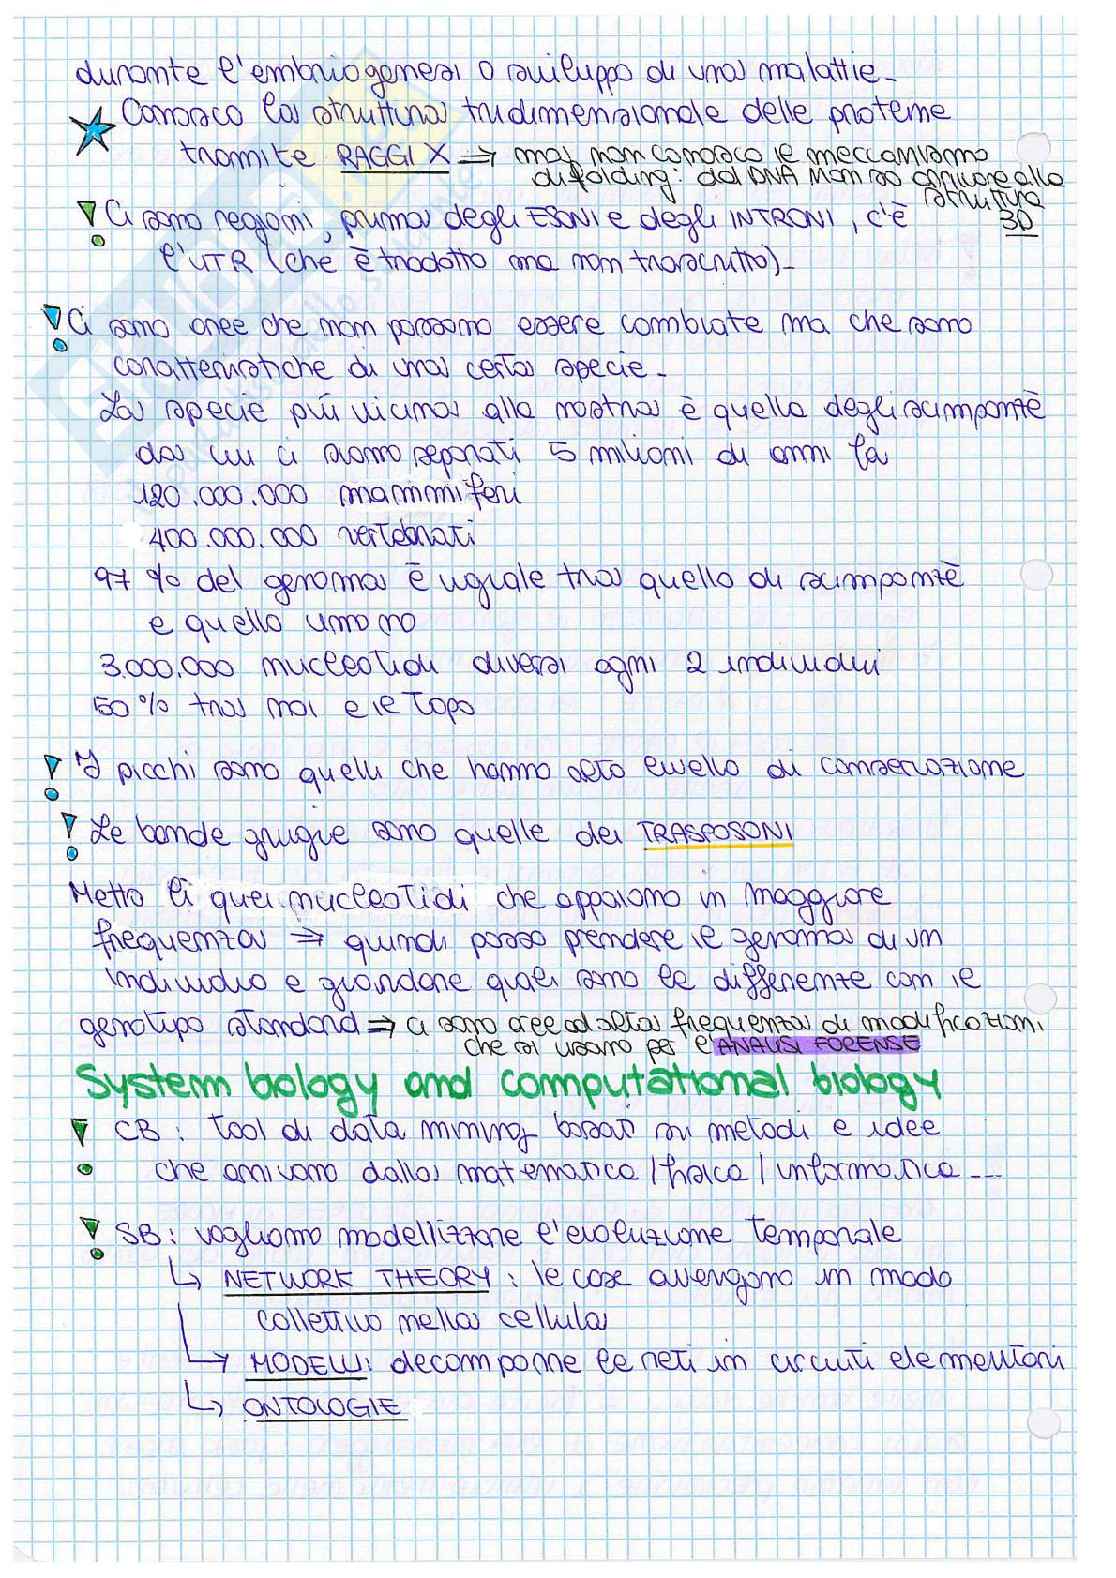 durante l'embriogenesi o sviluppo di una malattie_
Conosco la struttura tridimensionale delle proteine
tramite RAGGI X ⇒ ma non conosco il meccanismo
di folding: dal DNA non so arrivare alla
struttura
3D
Ci sono regioni, prima degli ESONI e degli INTRONI, c'è
l'UTR (che è tradotto ma non trascritto)_
Ci sono aree che non possono essere cambiate ma che sono
caratteristiche di una certa specie_
La specie più vicina alla nostra è quella degli scimpanzè
da cui ci siamo separati 5 milioni di anni fa
120.000.000 mammiferi
400.000.000 vertebrati
97 % del genoma è uguale tra quello di scimpanzè
e quello umano
3.000.000 nucleotidi diversi ogni 2 individui
50% tra noi e il topo
I picchi sono quelli che hanno alto livello di conservazione
Le bande grigie sono quelle dei TRASPOSONI
Metto lì quei nucleotidi che appaiono in maggiore
frequenza ⇒ quindi posso prendere il genoma di un
individuo e guardare quali sono le differenze con il
genotipo standard ⇒ ci sono aree ad alta frequenza di modificazioni
che si usano per l'ANALISI FORENSE
System biology and computational biology
CB: tool di data mining basati su metodi e idee
che arrivano dalla matematica/fisica/informatica ---
SB: vogliamo modellizzare l'evoluzione temporale
↳ NETWORK THEORY: le cose avvengono in modo
collettivo nella cellula
↳ MODELLI: decomporre le reti in circuiti elementari
↳ ONTOLOGIE